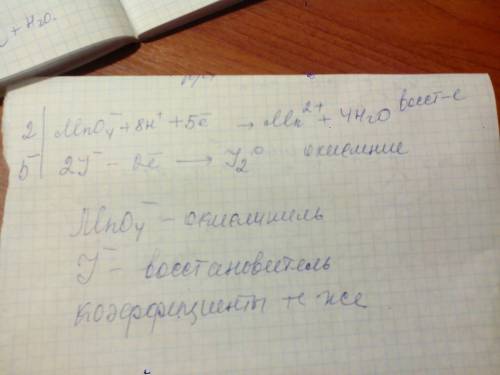 + H₂O.
2 | MnO₄⁻ + 8H⁺ + 5ē → Mn²⁺ + 4H₂O восст-е
5 | 2J⁻ - 2ē → J₂⁰ окисление
MnO₄⁻ - окислитель
J⁻ - восстановитель
коэффициенты те же